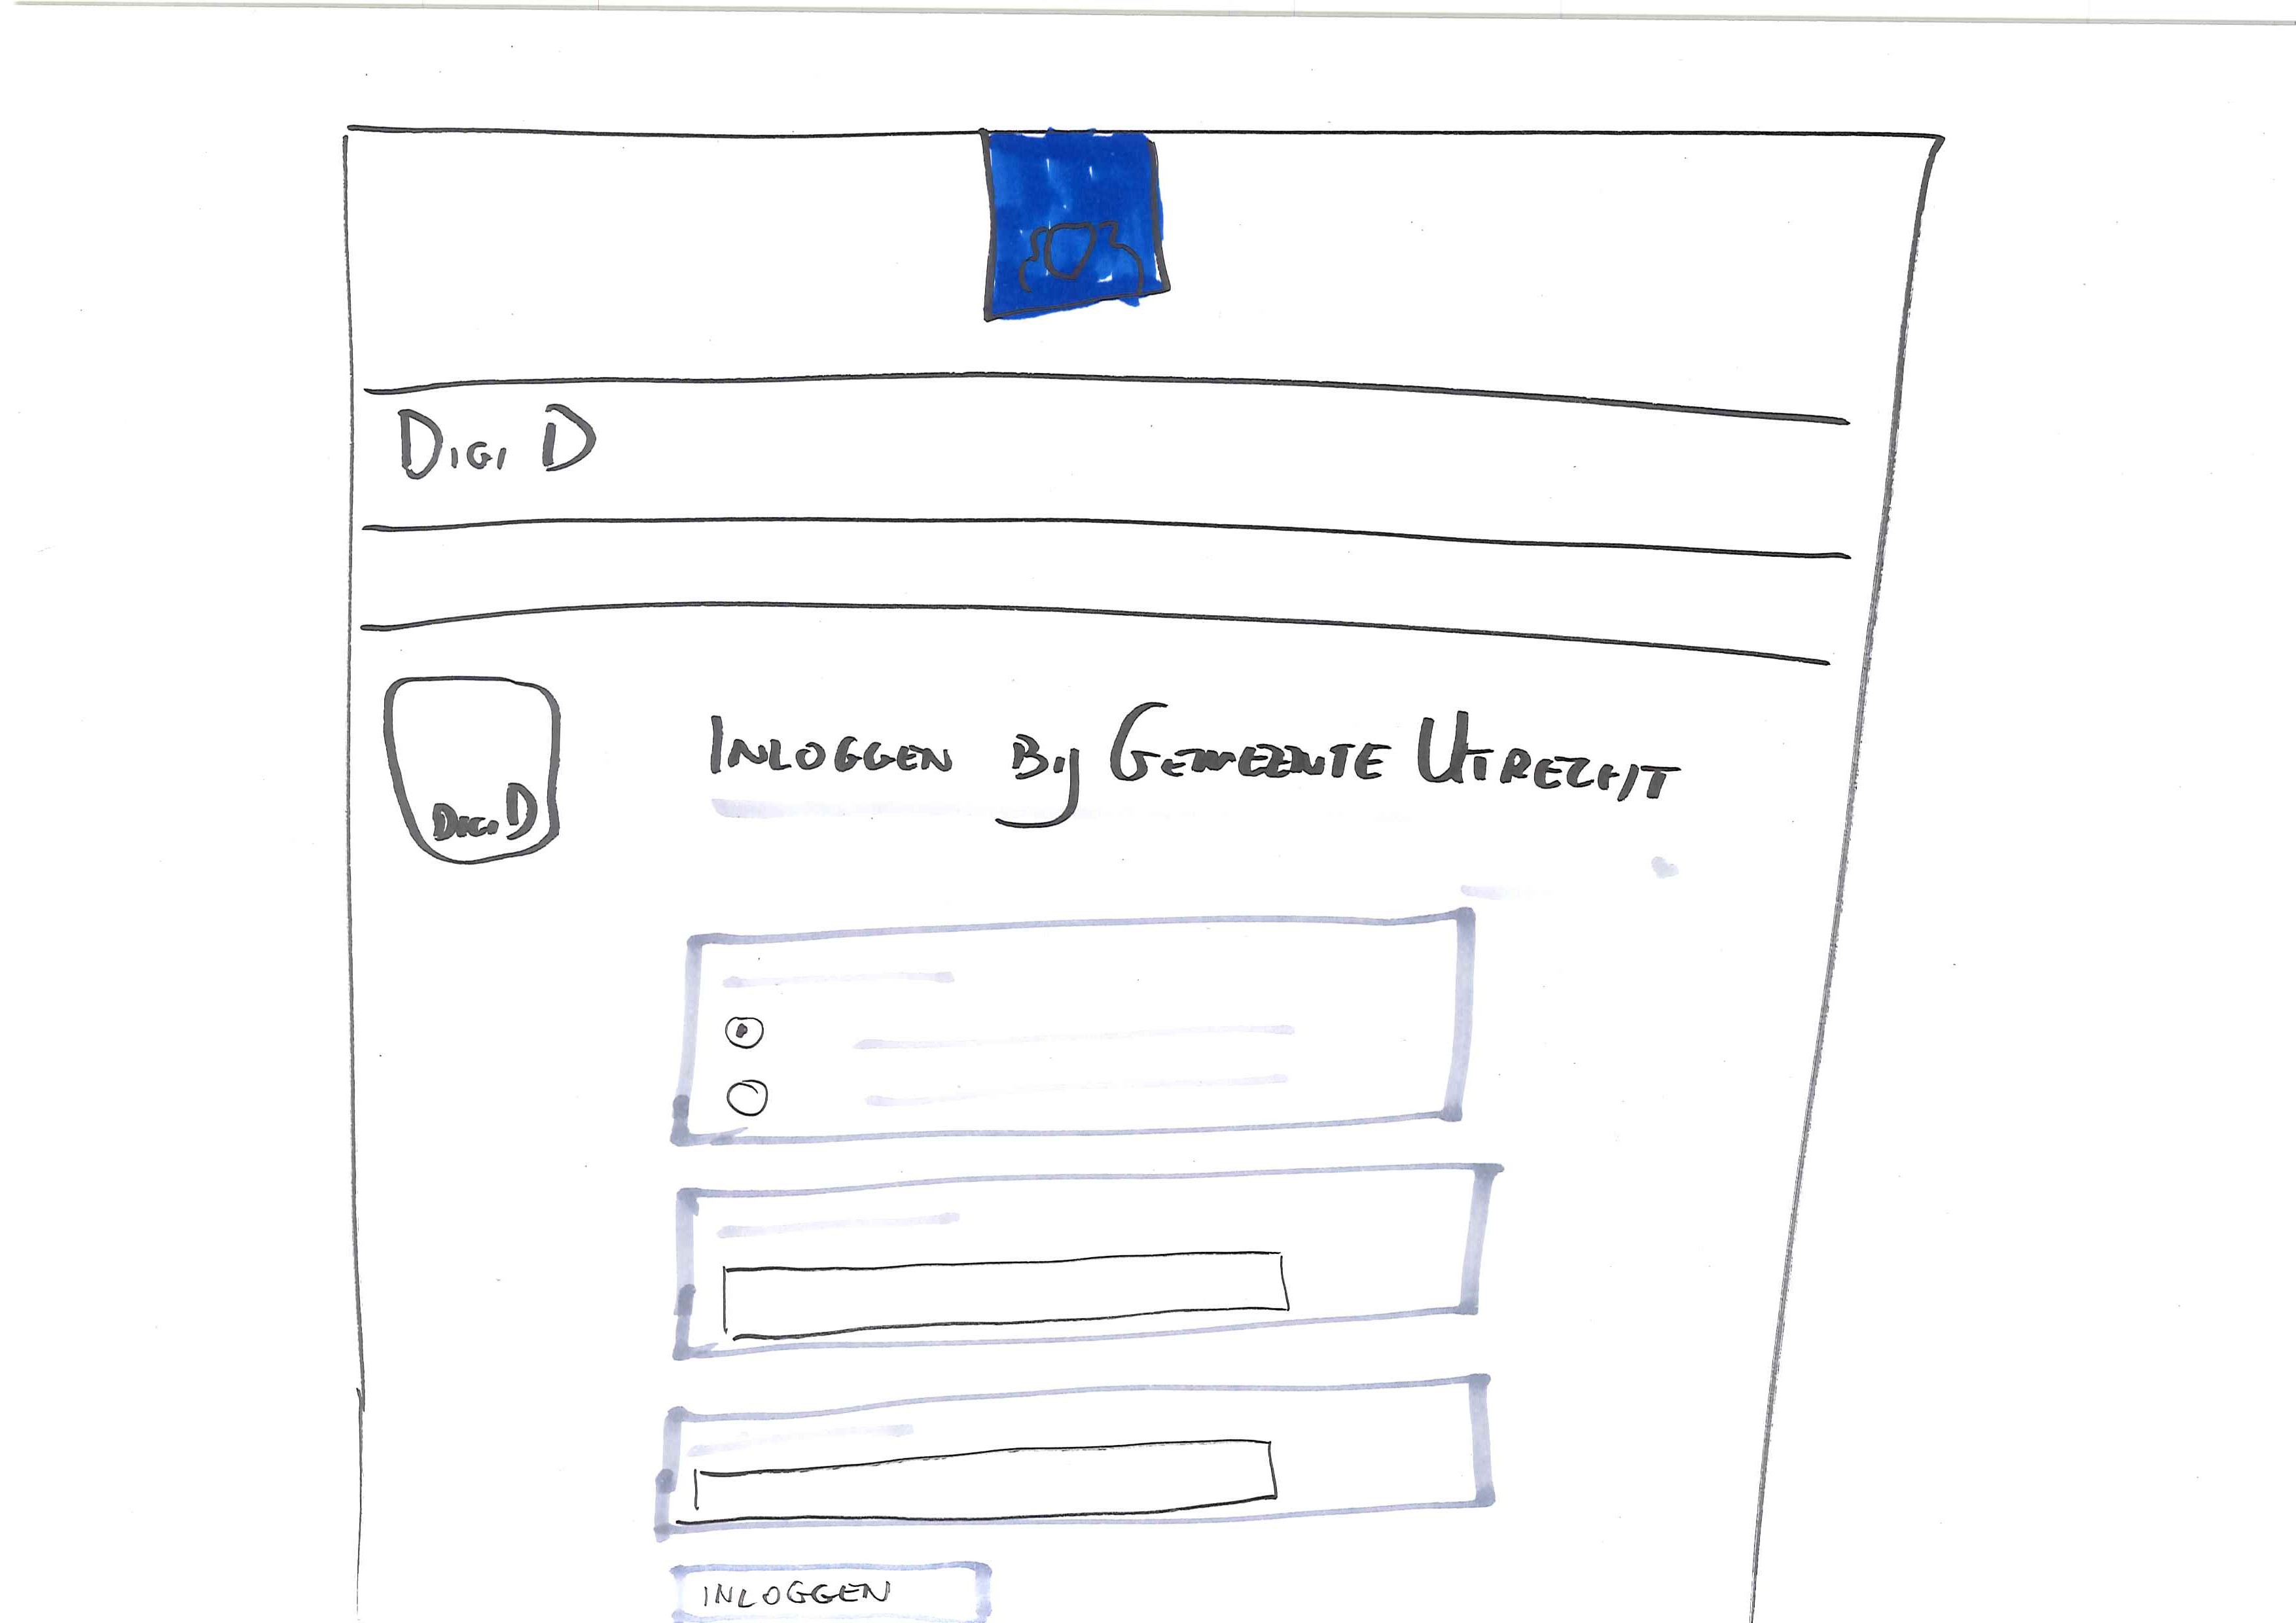 DIGI D
DIGI D
INLOGGEN BIJ GEMEENTE UTRECHT
INLOGGEN